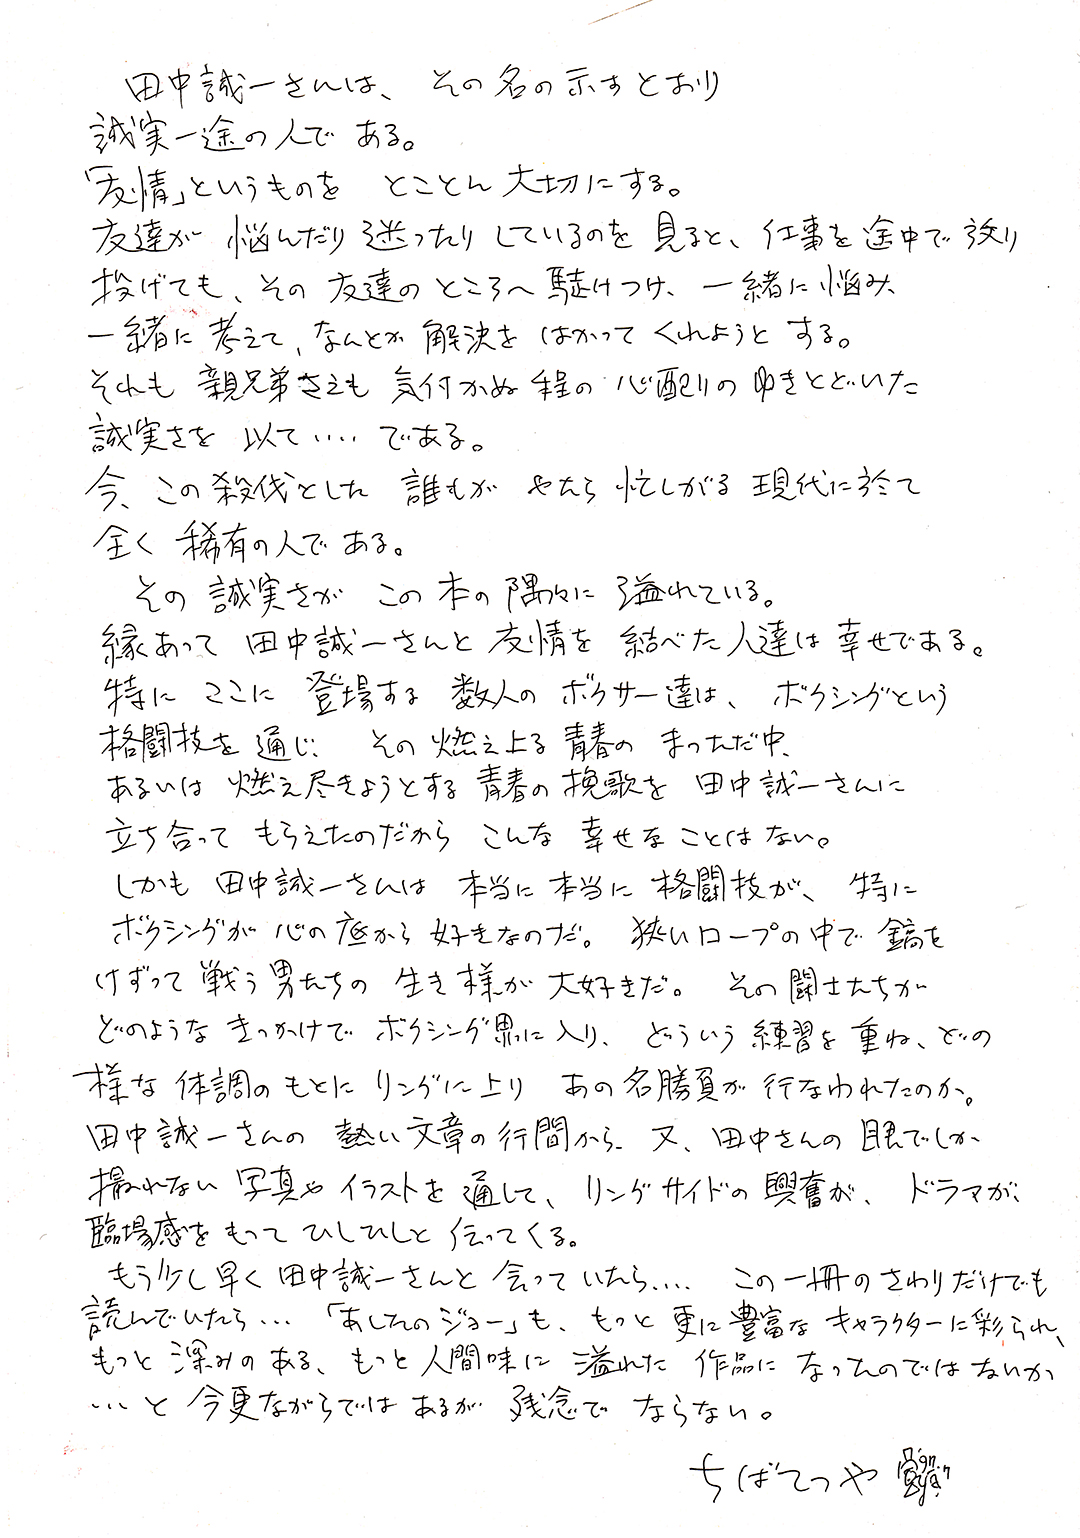 田中誠一さんは、その名の示すとおり
誠実一途の人である。
「友情」というものを とことん大切にする。
友達が 悩んだり迷ったりしているのを見ると、仕事を途中で放り
投げても、その友達のところへ駆けつけ、一緒に悩み、
一緒に考えて、なんとか解決をはかってくれようとする。
それも 親兄弟さえも気付かぬ程の心配りのゆきとどいた
誠実さを以て‥‥である。
今、この殺伐とした 誰もが やたら忙しがる現代に於て
全く稀有の人である。
その誠実さが この本の隅々に溢れている。
縁あって 田中誠一さんと友情を結べた人達は幸せである。
特に ここに登場する数人のボクサー達は、ボクシングという
格闘技を通じ、その燃え上る青春の まっただ中、
あるいは燃え尽きようとする青春の挽歌を 田中誠一さんに
立ち合って もらえたのだから こんな幸せなことはない。
しかも 田中誠一さんは 本当に本当に格闘技が、特に
ボクシングが心の底から好きなのだ。狭いロープの中で鎬を
けずって戦う男たちの生き様が大好きだ。その闘士たちが
どのようなきっかけでボクシング界に入り、どういう練習を重ね、どの
様な体調のもとにリングに上り あの名勝負が行なわれたのか。
田中誠一さんの 熱い文章の行間から、又、田中さんの眼でしか
撮れない写真やイラストを通して、リングサイドの興奮が、ドラマが、
臨場感をもって ひしひしと伝ってくる。
もう少し早く田中誠一さんと会っていたら‥‥ この一冊のさわりだけでも
読んでいたら… 「あしたのジョー」も、もっと更に豊富なキャラクターに彩られ、
もっと深みのある、もっと人間味に溢れた作品になったのではないか
…と今更ながらではあるが残念でならない。
ちばてつや